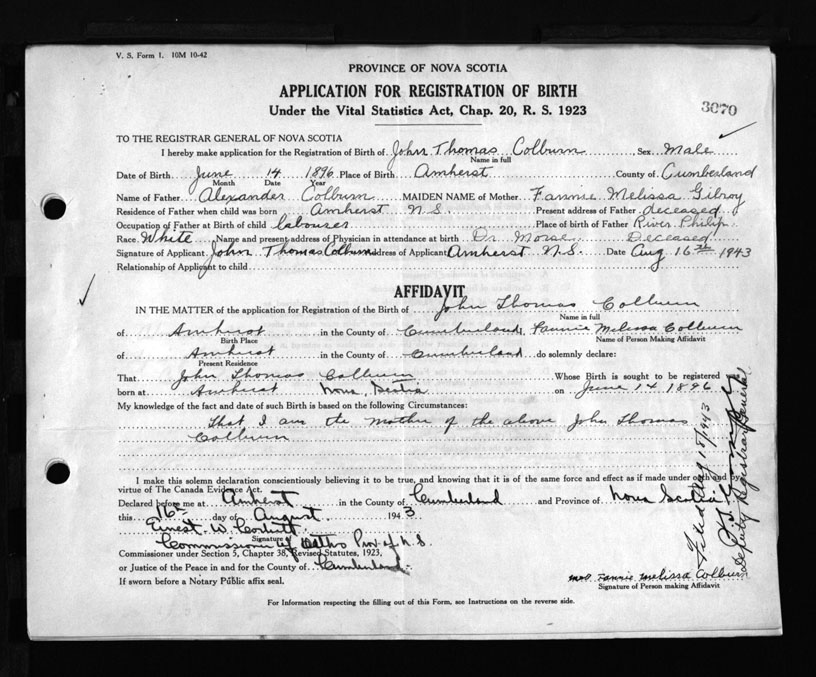 V. S. Form 1. 10M 10-42
PROVINCE OF NOVA SCOTIA
APPLICATION FOR REGISTRATION OF BIRTH
Under the Vital Statistics Act, Chap. 20, R. S. 1923
3070
TO THE REGISTRAR GENERAL OF NOVA SCOTIA
I hereby make application for the Registration of Birth of John Thomas Colburn, Sex Male
Name in full
Date of Birth June 14 1896 Place of Birth Amherst County of Cumberland
Month Date Year
Name of Father Alexander Colburn MAIDEN NAME of Mother Fannie Melissa Gilroy
Residence of Father when child was born Amherst N.S. Present address of Father deceased
Occupation of Father at Birth of child labourer Place of birth of Father River Philip
Race White Name and present address of Physician in attendance at birth Dr. Morse Deceased
Signature of Applicant John Thomas Colburn Address of Applicant Amherst N.S. Date Aug 16th 1943
Relationship of Applicant to child
AFFIDAVIT
IN THE MATTER of the application for Registration of the Birth of John Thomas Colburn
Name in full
of Amherst in the County of Cumberland, Fannie Melissa Colburn
Birth Place Name of Person Making Affidavit
of Amherst in the County of Cumberland do solemnly declare:
Present Residence
That John Thomas Colburn Whose Birth is sought to be registered
born at Amherst Nova Scotia on June 14 1896
My knowledge of the fact and date of such Birth is based on the following Circumstances:
That I am the mother of the above John Thomas
Colburn
I make this solemn declaration conscientiously believing it to be true, and knowing that it is of the same force and effect as if made under oath and by
virtue of The Canada Evidence Act.
Declared before me at Amherst in the County of Cumberland and Province of Nova Scotia
this 16th day of August 1943
Ernest W. Corbett
Signature of
Commissioner of Oaths Prov of N.S.
Commissioner under Section 5, Chapter 38, Revised Statutes, 1923,
or Justice of the Peace in and for the County of Cumberland
If sworn before a Notary Public affix seal.
Mrs. Fannie Melissa Colburn
Signature of Person making Affidavit
For Information respecting the filling out of this Form, see Instructions on the reverse side.
Filed Aug 18/1943
Deputy Registrar